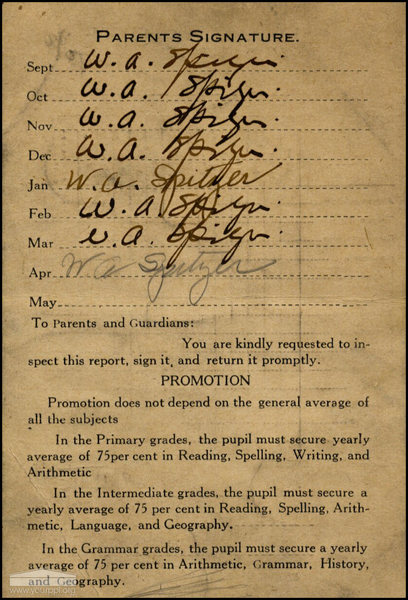 PARENTS SIGNATURE.
Sept W. A. Spitzer
Oct W. A. Spitzer
Nov W. A. Spitzer
Dec W. A. Spitzer
Jan W. A. Spitzer
Feb W. A. Spitzer
Mar W. A. Spitzer
Apr W A Spitzer
May
To Parents and Guardians:
You are kindly requested to in-
spect this report, sign it, and return it promptly.
PROMOTION
Promotion does not depend on the general average of
all the subjects
In the Primary grades, the pupil must secure yearly
average of 75per cent in Reading, Spelling, Writing, and
Arithmetic
In the Intermediate grades, the pupil must secure a
yearly average of 75 per cent in Reading, Spelling, Arith-
metic, Language, and Geography.
In the Grammar grades, the pupil must secure a yearly
average of 75 per cent in Arithmetic, Grammar, History,
and Geography.